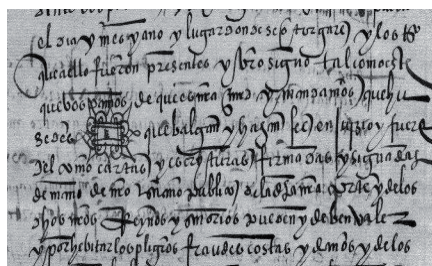 el dia y mes y año y lugar donde se otorgare y los tºs
que a ello fueron presentes y vro signo tal como este
que vos damos de que es mra mrd y mandamos que hu
sedes que balgan y hagan fee en juizio y fuera
del como cartas y escrituras firmadas y signadas
de mano de nro esno publico de la dha mra corte y de los
dhos nros Reynos y señorios pueden y deben valer
y por hebitar los perjuros fraudes costas y daños y de los